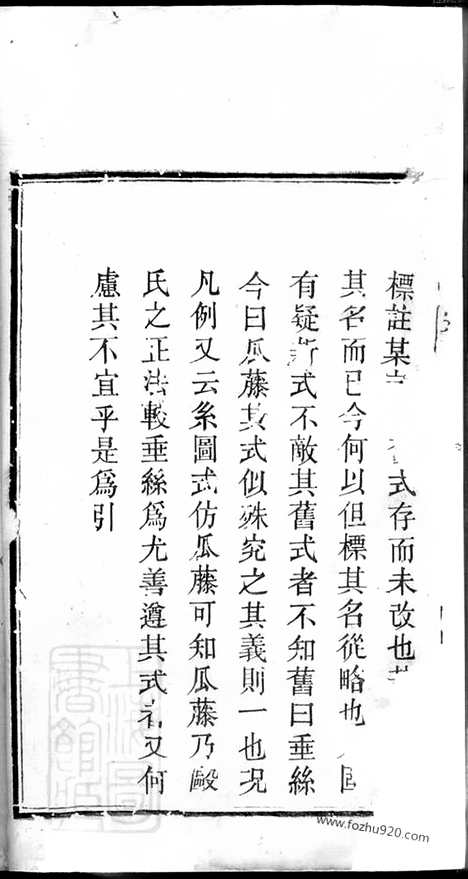 標註某式存而未改也
其名而已今何以但標其名從略也
有疑新式不敵其舊式者不知舊曰垂絲
今曰瓜藤其式似殊究之其義則一也況
凡例又云系圖式仿瓜藤可知瓜藤乃毆
氏之正法較垂絲為尤善遵其式者又何
慮其不宜乎是為引
www.fozhu920.com